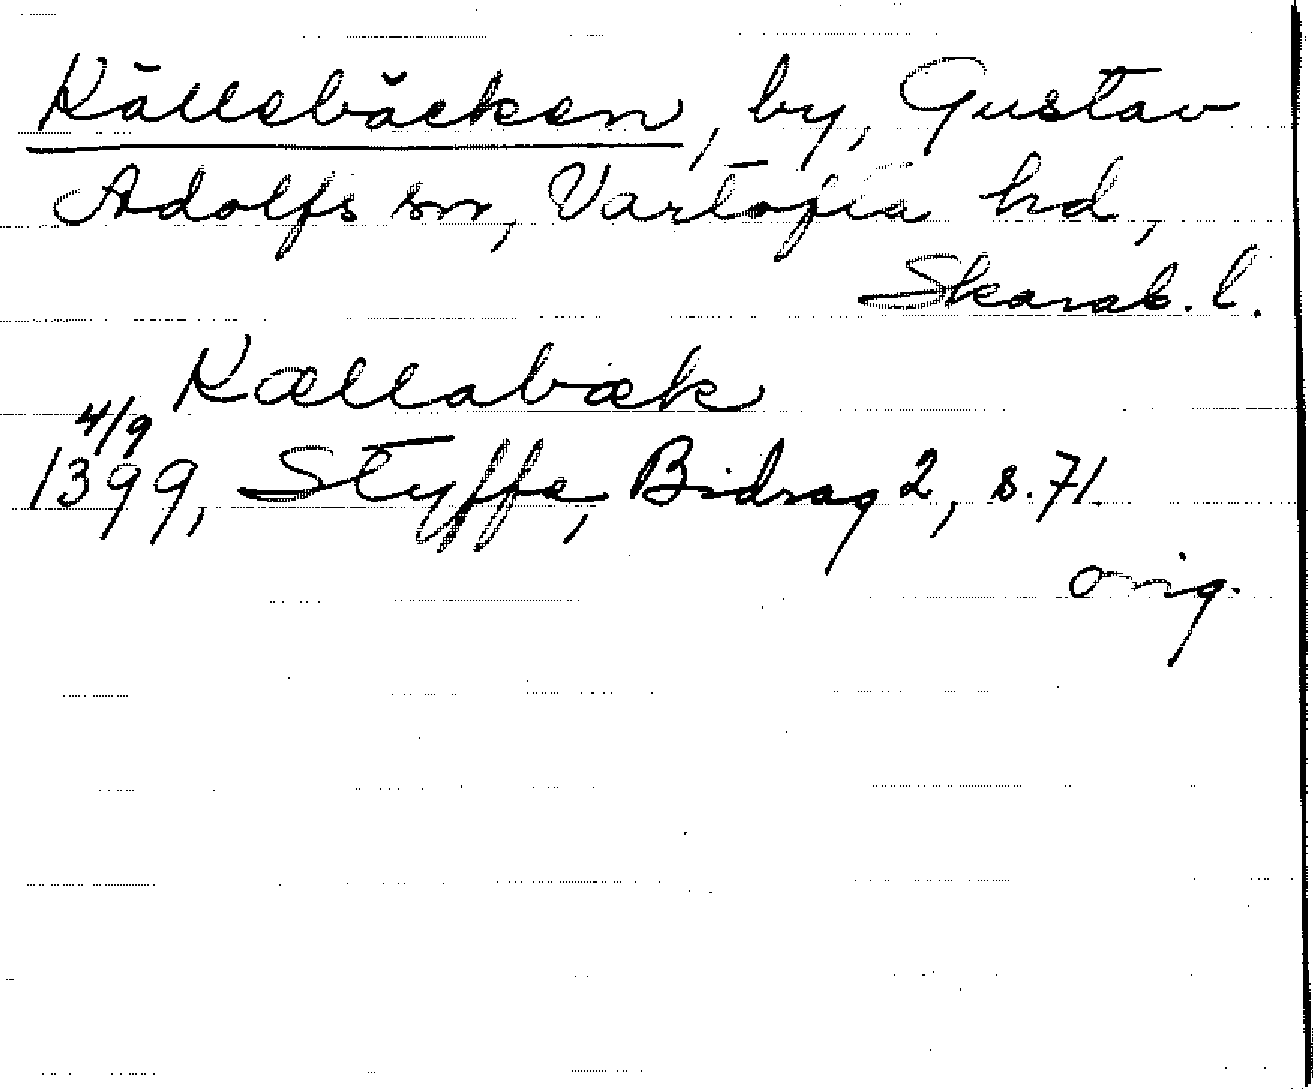 Källebäcken, by, Gustav
Adolfs sn, Vartofta hd,
Skarab. l.
Kællabæk
4/9
1399, Styffe, Bidrag 2, s. 71.
orig.